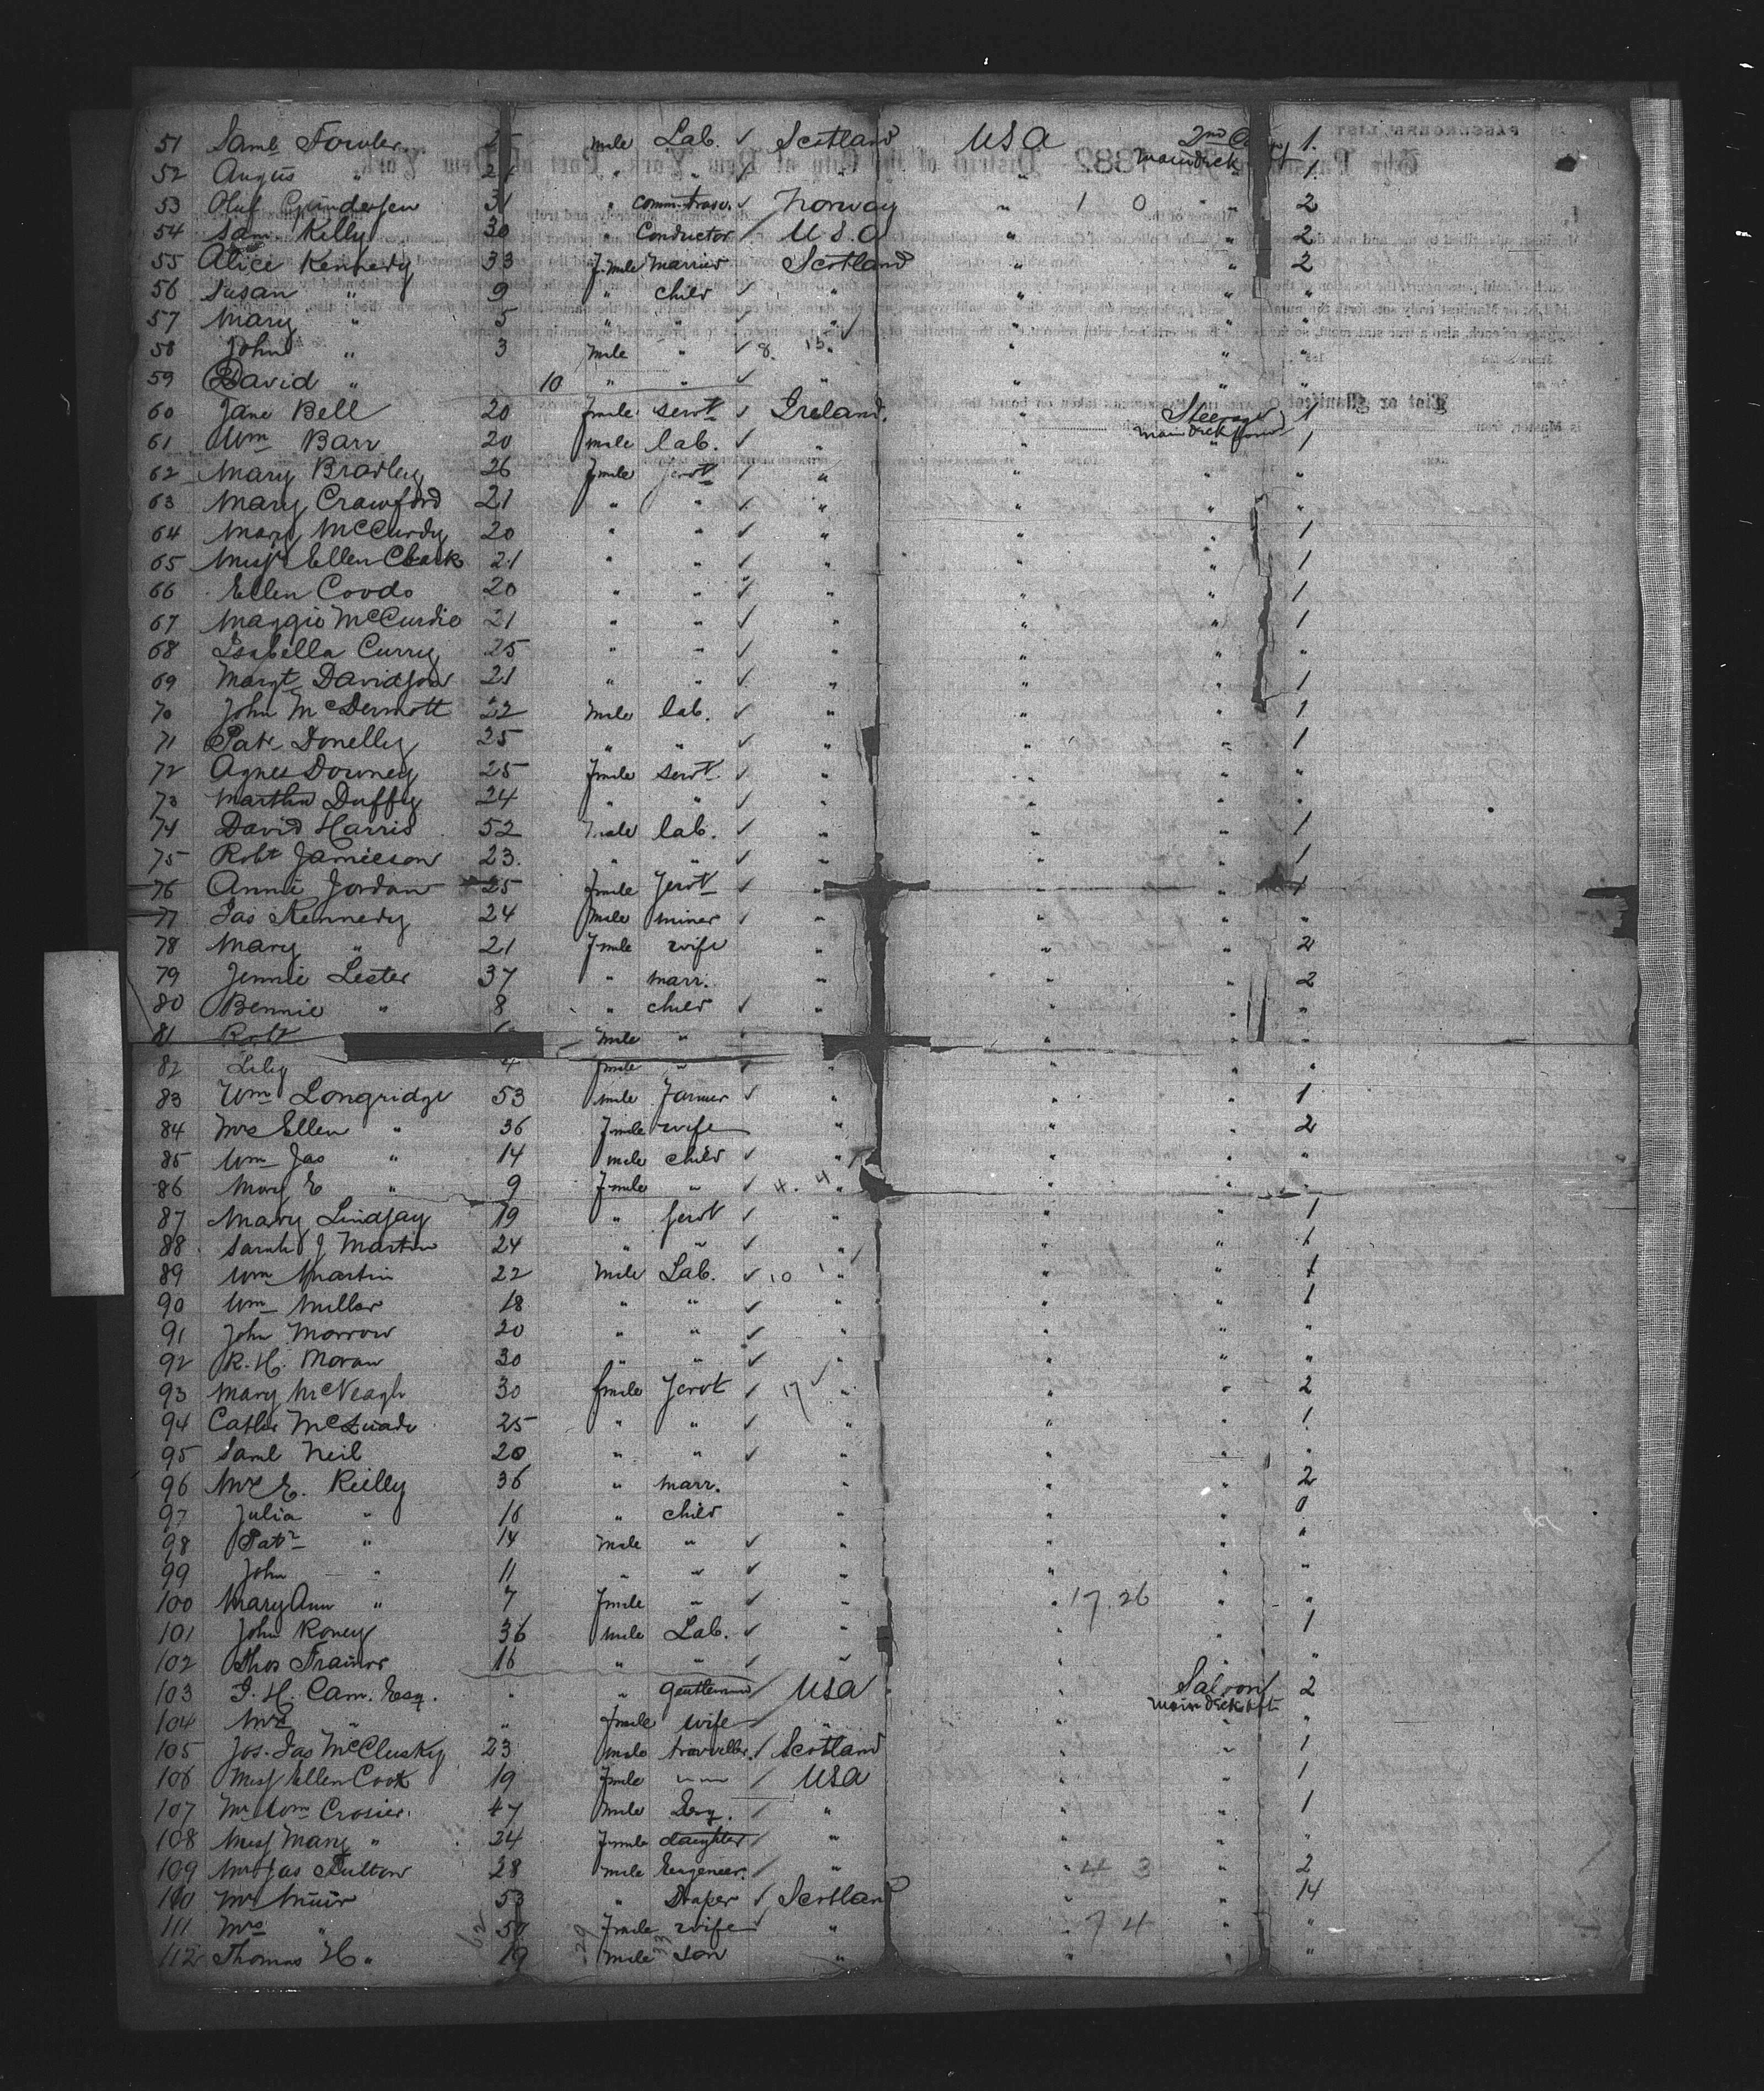 51 Saml Fowler 2 male Lab. ✓ Scotland USA 2nd 1.
52 Angus " 2 " " ✓ " " main deck " 1
53 Oluf Gundersen 31 " comm. trav. ✓ Norway " 1 0 " " 2
54 Sam Kelly 30 " Conductor / U S. A " " 2
55 Alice Kennedy 33 fmale married Scotland " " 2
56 Susan " 9 " child ✓ " " " "
57 Mary " 5 " " ✓ " " " "
58 John " 3 male " ✓ 8. 15 " " " "
59 David " 10 " " ✓ " " " "
60 Jane Bell 20 fmale servt ✓ Ireland. " Steerage 1
61 Wm Barr 20 male lab. ✓ " " main deck forwd 1
62 Mary Bradley 26 fmale servt ✓ " " " "
63 Mary Crawford 21 " " ✓ " " " "
64 Mary McCurdy 20 " " ✓ " " " 1
65 Miss Ellen Clark 21 " " ✓ " " " 1
66 Ellen Coods 20 " " ✓ " " " 1
67 Maggie McCurdie 21 " " ✓ " " " 1
68 Isabella Curry 25 " " ✓ " " " "
69 Margt Davidson 21 " " ✓ " " " 1
70 John McDermott 22 male lab. ✓ " " " 1
71 Patk Donelly 25 " " ✓ " " " 1
72 Agnes Downey 25 fmale servt ✓ " " " "
73 Martha Duffy 24 " " ✓ " " " "
74 David Harris 52 male lab. ✓ " " " 1
75 Robt Jamieson 23. " " ✓ " " " 1
76 Annie Jordan 25 fmale servt ✓ " " " 1
77 Jas Kennedy 24 male miner ✓ " " " "
78 Mary " 21 fmale wife " " " 2
79 Jennie Lester 37 " marr. " " " 2
80 Bennie " 8 " child ✓ " " " "
81 Robt male " " " "
82 Lily 4 fmale " ✓ " " " "
83 Wm Longridge 53 male Farmer ✓ " " " 1
84 Mrs Ellen " 36 fmale wife " " " 2
85 Wm Jas " 14 male child ✓ " " " "
86 Mary E " 9 fmale " ✓ 4. 4 " " " "
87 Mary Lindsay 19 " servt ✓ " " " 1
88 Sarah J Martin 24 " " ✓ " " " 1
89 Wm Martin 22 male Lab. ✓ 10 1 " " " 1
90 Wm Millar 18 " " ✓ " " " 1
91 John Morrow 20 " " ✓ " " " "
92 R. H. Moran 30 " " ✓ " " " "
93 Mary McVeagh 30 fmale servt ✓ 17 ✓ " " " 2
94 Cathr McQuade 25 " " ✓ " " " 1
95 Saml Neil 20 " " ✓ " " " "
96 Mrs E. Reilly 36 " marr. " " " 2
97 Julia " 16 " child " " " 0
98 Patk " 14 male " ✓ " " " "
99 John " 11 " " ✓ " " " "
100 Mary Ann " 7 fmale " ✓ " " 17.26 " "
101 John Roney 36 male Lab. ✓ " " " 1
102 Thos Trainor 16 " " ✓ " " " "
103 J. H. Cam. Esq. " " Gentleman / USA " Saloon 2
104 Mrs " " fmale wife / " " main deck aft "
105 Jos. Jas McClusky 23 male traveller / Scotland " " 1
106 Miss Ellen Cook 19 fmale " " / USA " " 1
107 Mr Wm Crosier. 47 male Esq. / " " " 1
108 Miss Mary " 24 fmale daughter / " " " "
109 Mr Jas Fulton 28 male Engeneer. / " " 4 3 " 2
110 Mr Muir 53 " Draper ✓ Scotland " " 14
111 Mrs " 62 5 29 fmale wife ✓ " " 7 4 " "
112 Thomas H. " 19 male 33 son " " " "